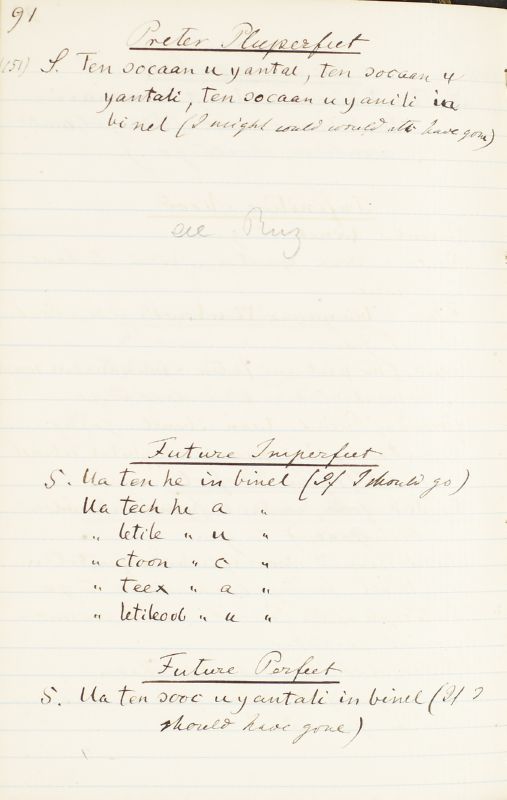 91
Preter Pluperfect
(151) S. Ten socaan u yantal, ten socaan u
yantali, ten socaan u yanili in
binel (I might could would etc have gone)
see Ruz
Future Imperfect
S. Ua ten he in binel (If I should go)
Ua tech he a "
" letile " u "
" ctoon " c "
" teex " a "
" letileoob " u "
Future Perfect
S. Ua ten sooc u yantali in binel (If I
should have gone)